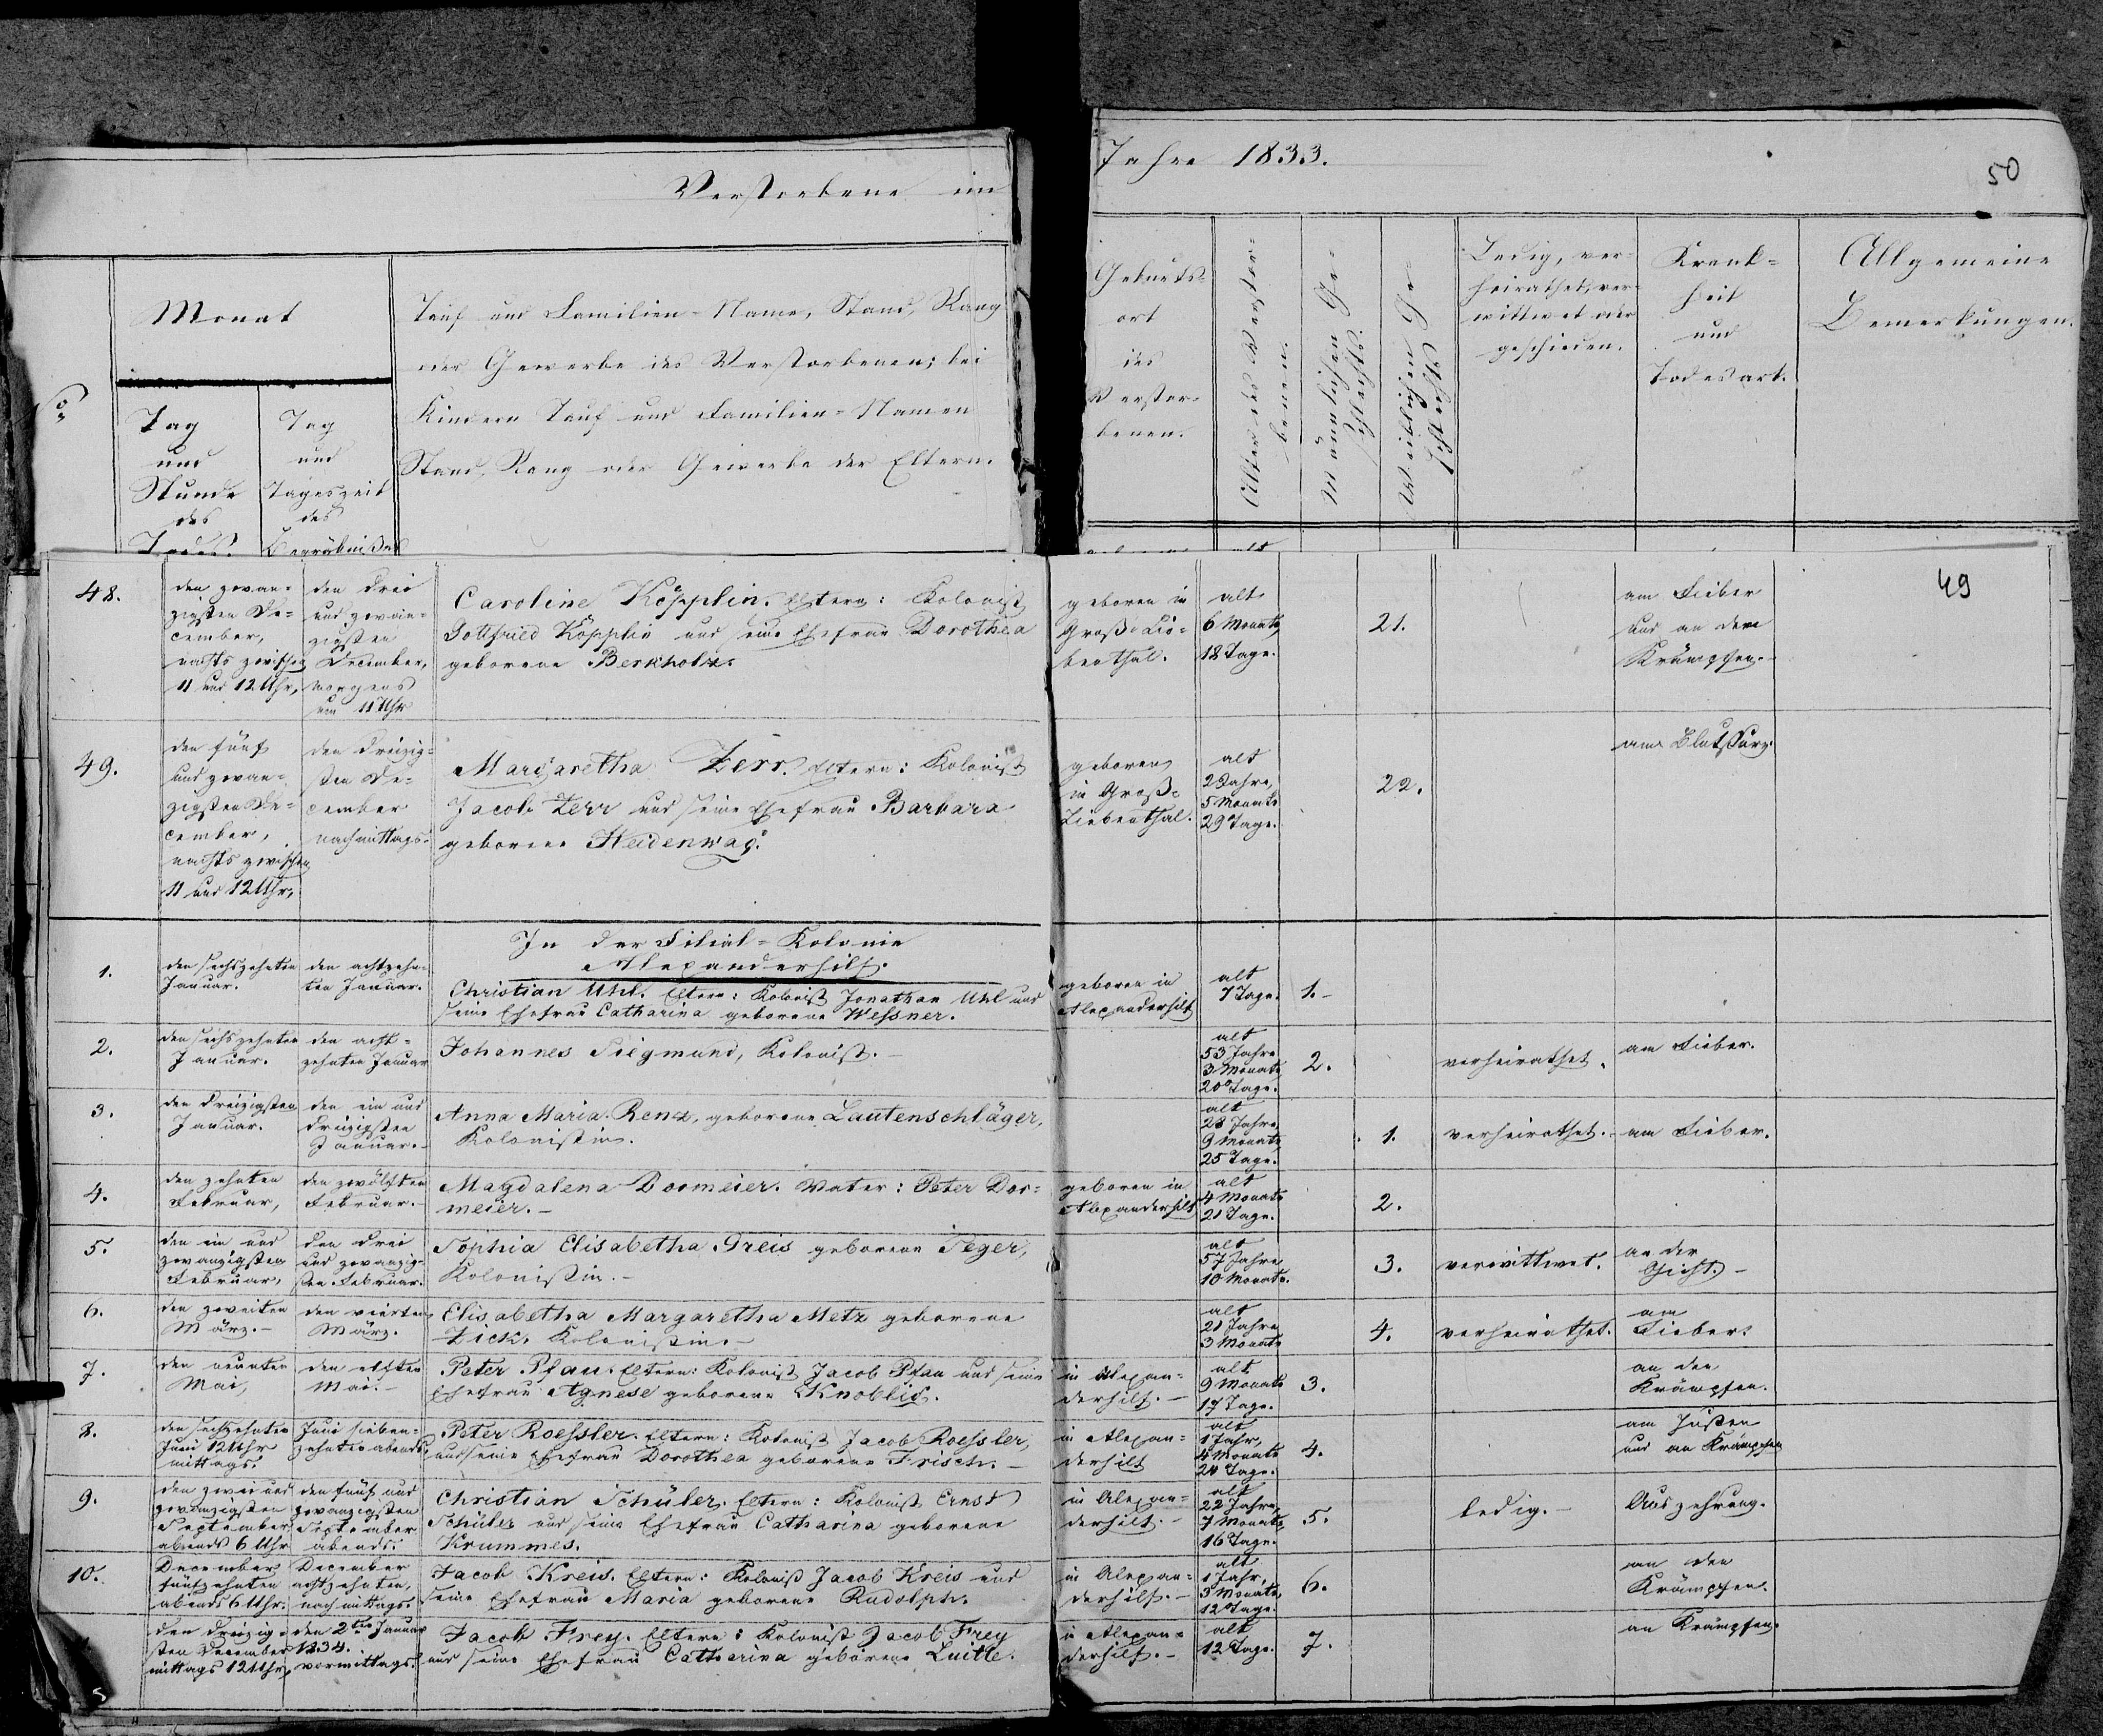 Verstorbene im
Jahre 1833.
50
No
Monat
Tag
und
Stunde
des
Todes.
Tag
und
Tageszeit
des
Begräbnißes
Tauf und Familien-Name, Stand, Rang
oder Gewerbe des Verstorbenen; bei
Kindern Tauf und Familien-Namen
Stand, Rang oder Gewerbe der Eltern.
Geburts-
ort
des
Verstor-
benen.
Alter des Verstor-
benen.
Männlichen Ge-
schlechts.
Weiblichen Ge-
schlechts
Ledig, ver-
heirathet, ver-
wittwet oder
geschieden.
Krank-
heit
und
Todesart.
Allgemeine
Bemerkungen.
49
48.
den zwan-
zigsten De-
cember,
nachts zwischen
11 und 12 Uhr,
den drei
und zwan-
zigsten
December,
morgens
um 11 Uhr
Caroline Köpplin. Eltern: Kolonist
Gottfried Köpplin und seine Ehefrau Dorothea
geborene Berkholz.
geboren in
Groß-Lie-
benthal.
alt
6 Monate,
18 Tage.
21.
am Fieber
und an den
Krämpfen.
49.
den fünf
und zwan-
zigsten De-
cember,
nachts zwischen
11 und 12 Uhr,
den dreizig-
sten De-
cember
nachmittags.
Margaretha Zerr. Eltern: Kolonist
Jacob Zerr und seine Ehefrau Barbara
geborene Heidenwag.
geboren
in Groß-
Liebenthal.
alt
2 Jahre,
5 Monate
29 Tage.
22.
am Blutsturz.
In der Filial-Kolonie
Alexanderhilf.
1.
den sechszehnten
Januar.
den achtzehn-
ten Januar.
Christian Uhl. Eltern: Kolonist Jonathan Uhl und
seine Ehefrau Catharina geborene Wessner.
geboren in
Alexanderhilf
alt
7 Tage.
1.
2.
den sechszehnten
Januar.
den acht-
zehnten Januar
Johannes Siegmund, Kolonist.
alt
53 Jahre
3 Monate
20 Tage.
2.
verheirathet.
am Fieber.
3.
den dreizigsten
Januar.
den ein und
dreizigsten
Januar.
Anna Maria Renz, geborene Lautenschläger,
Kolonistin.
alt
28 Jahre,
9 Monate
25 Tage.
1.
verheirathet.
am Fieber.
4.
den zehnten
Februar,
den zwölften
Februar.
Magdalena Dormeier. Vater: Peter Dor-
meier.
geboren in
Alexanderhilf
alt
4 Monate
21 Tage.
2.
5.
den ein und
zwanzigsten
Februar,
den drei
und zwanzig-
sten Februar.
Sophia Elisabetha Greis geborene Seger,
Kolonistin.
alt
57 Jahre
10 Monate.
3.
verwittwet.
an der
Gicht.
6.
den zweiten
März.
den vierten
März.
Elisabetha Margaretha Metz geborene
Zick, Kolonistin.
alt
21 Jahre
3 Monate
4.
verheirathet.
am
Fieber.
7.
den neunten
Mai,
den elften
Mai.
Peter Pfau. Eltern: Kolonist Jacob Pfau und seine
Ehefrau Agnese geborene Knoblig.
in Alexan-
derhilf.
alt
9 Monate
17 Tage.
3.
an den
Krämpfen.
8.
den sechzehnten
Juni 12 Uhr
mittags.
Juni sieben-
zehnten abends,
Peter Roessler. Eltern: Kolonist Jacob Roessler,
und seine Ehefrau Dorothea geborene Frisch.
in Alexan-
derhilf
alt
1 Jahr,
4 Monate
24 Tage.
4.
am Husten
und an Krämpfen
9.
den zwei und
zwanzigsten
September
abends 6 Uhr
den fünf und
zwanzigsten
September
abends.
Christian Schüler. Eltern: Kolonist Ernst
Schüler und seine Ehefrau Catharina geborene
Krummes.
in Alexan-
derhilf.
alt
22 Jahre,
7 Monate,
16 Tage.
5.
ledig.
Auszehrung.
10.
December
fünfzehnten
abends 6 Uhr.
December
achtzehnten,
nachmittags.
Jacob Kreis. Eltern: Kolonist Jacob Kreis und
seine Ehefrau Maria geborene Rudolph.
in Alexan-
derhilf.
alt
1 Jahr,
3 Monate,
12 Tage.
6.
an den
Krämpfen.
den dreizig-
sten December
mittags 12 Uhr,
den 2ten Januar
1834.
vormittags.
Jacob Frey. Eltern: Kolonist Jacob Frey
und seine Ehefrau Catharina geborene Luitle.
in Alexan-
derhilf.
alt
12 Tage.
7.
an Krämpfen.